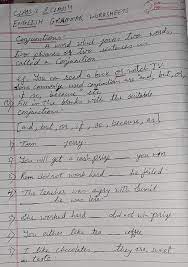 CLASS 3 & CLASS 4
ENGLISH GRAMMAR WORKSHEETS
Conjunctions:-
A word which joins two words,
two phrases or two sentences is
called a Conjunction
e.g. You can read a book or watch TV.
Some commonly used conjunction are and, but, or,
if, so, because etc.
Fill in the blanks with the suitable
conjunctions
[and, but, or, if, so, because, as]
1) Tom ___ Jerry.
2) You will get a cash prize ___ you won
3) Ram did not work hard ___ he failed
4) The teacher was angry with Sunil
___ he was late
5) She worked hard ___ did not win prize
6) You either like tea ___ coffee
7) I like chocolates ___ they are sweet
in taste